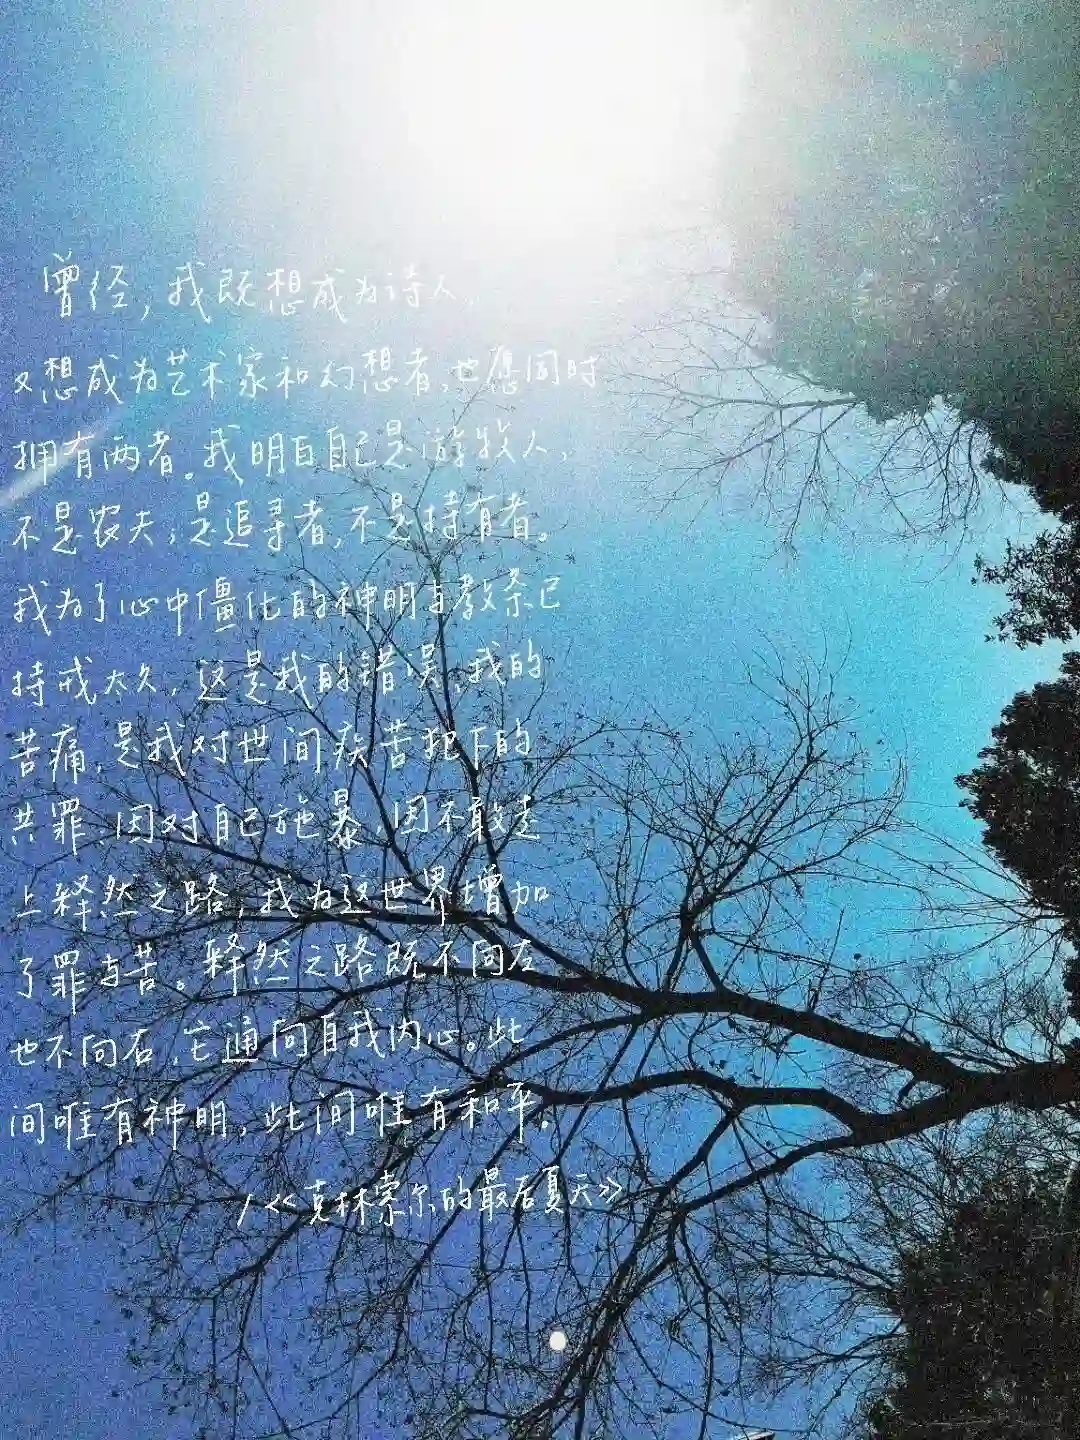 曾经，我既想成为诗人，
又想成为艺术家和幻想者，也愿同时
拥有两者。我明白自己是游牧人，
不是农夫；是追寻者，不是持有者。
我为了心中僵化的神明与教条已
持戒太久，这是我的错误、我的
苦痛，是我对世间疾苦犯下的
共罪。因对自己施暴，因不敢走
上释然之路，我为这世界增加
了罪与苦。释然之路既不向左
也不向右，它通向自我内心。此
间唯有神明，此间唯有和平。
/《克林索尔的最后夏天》